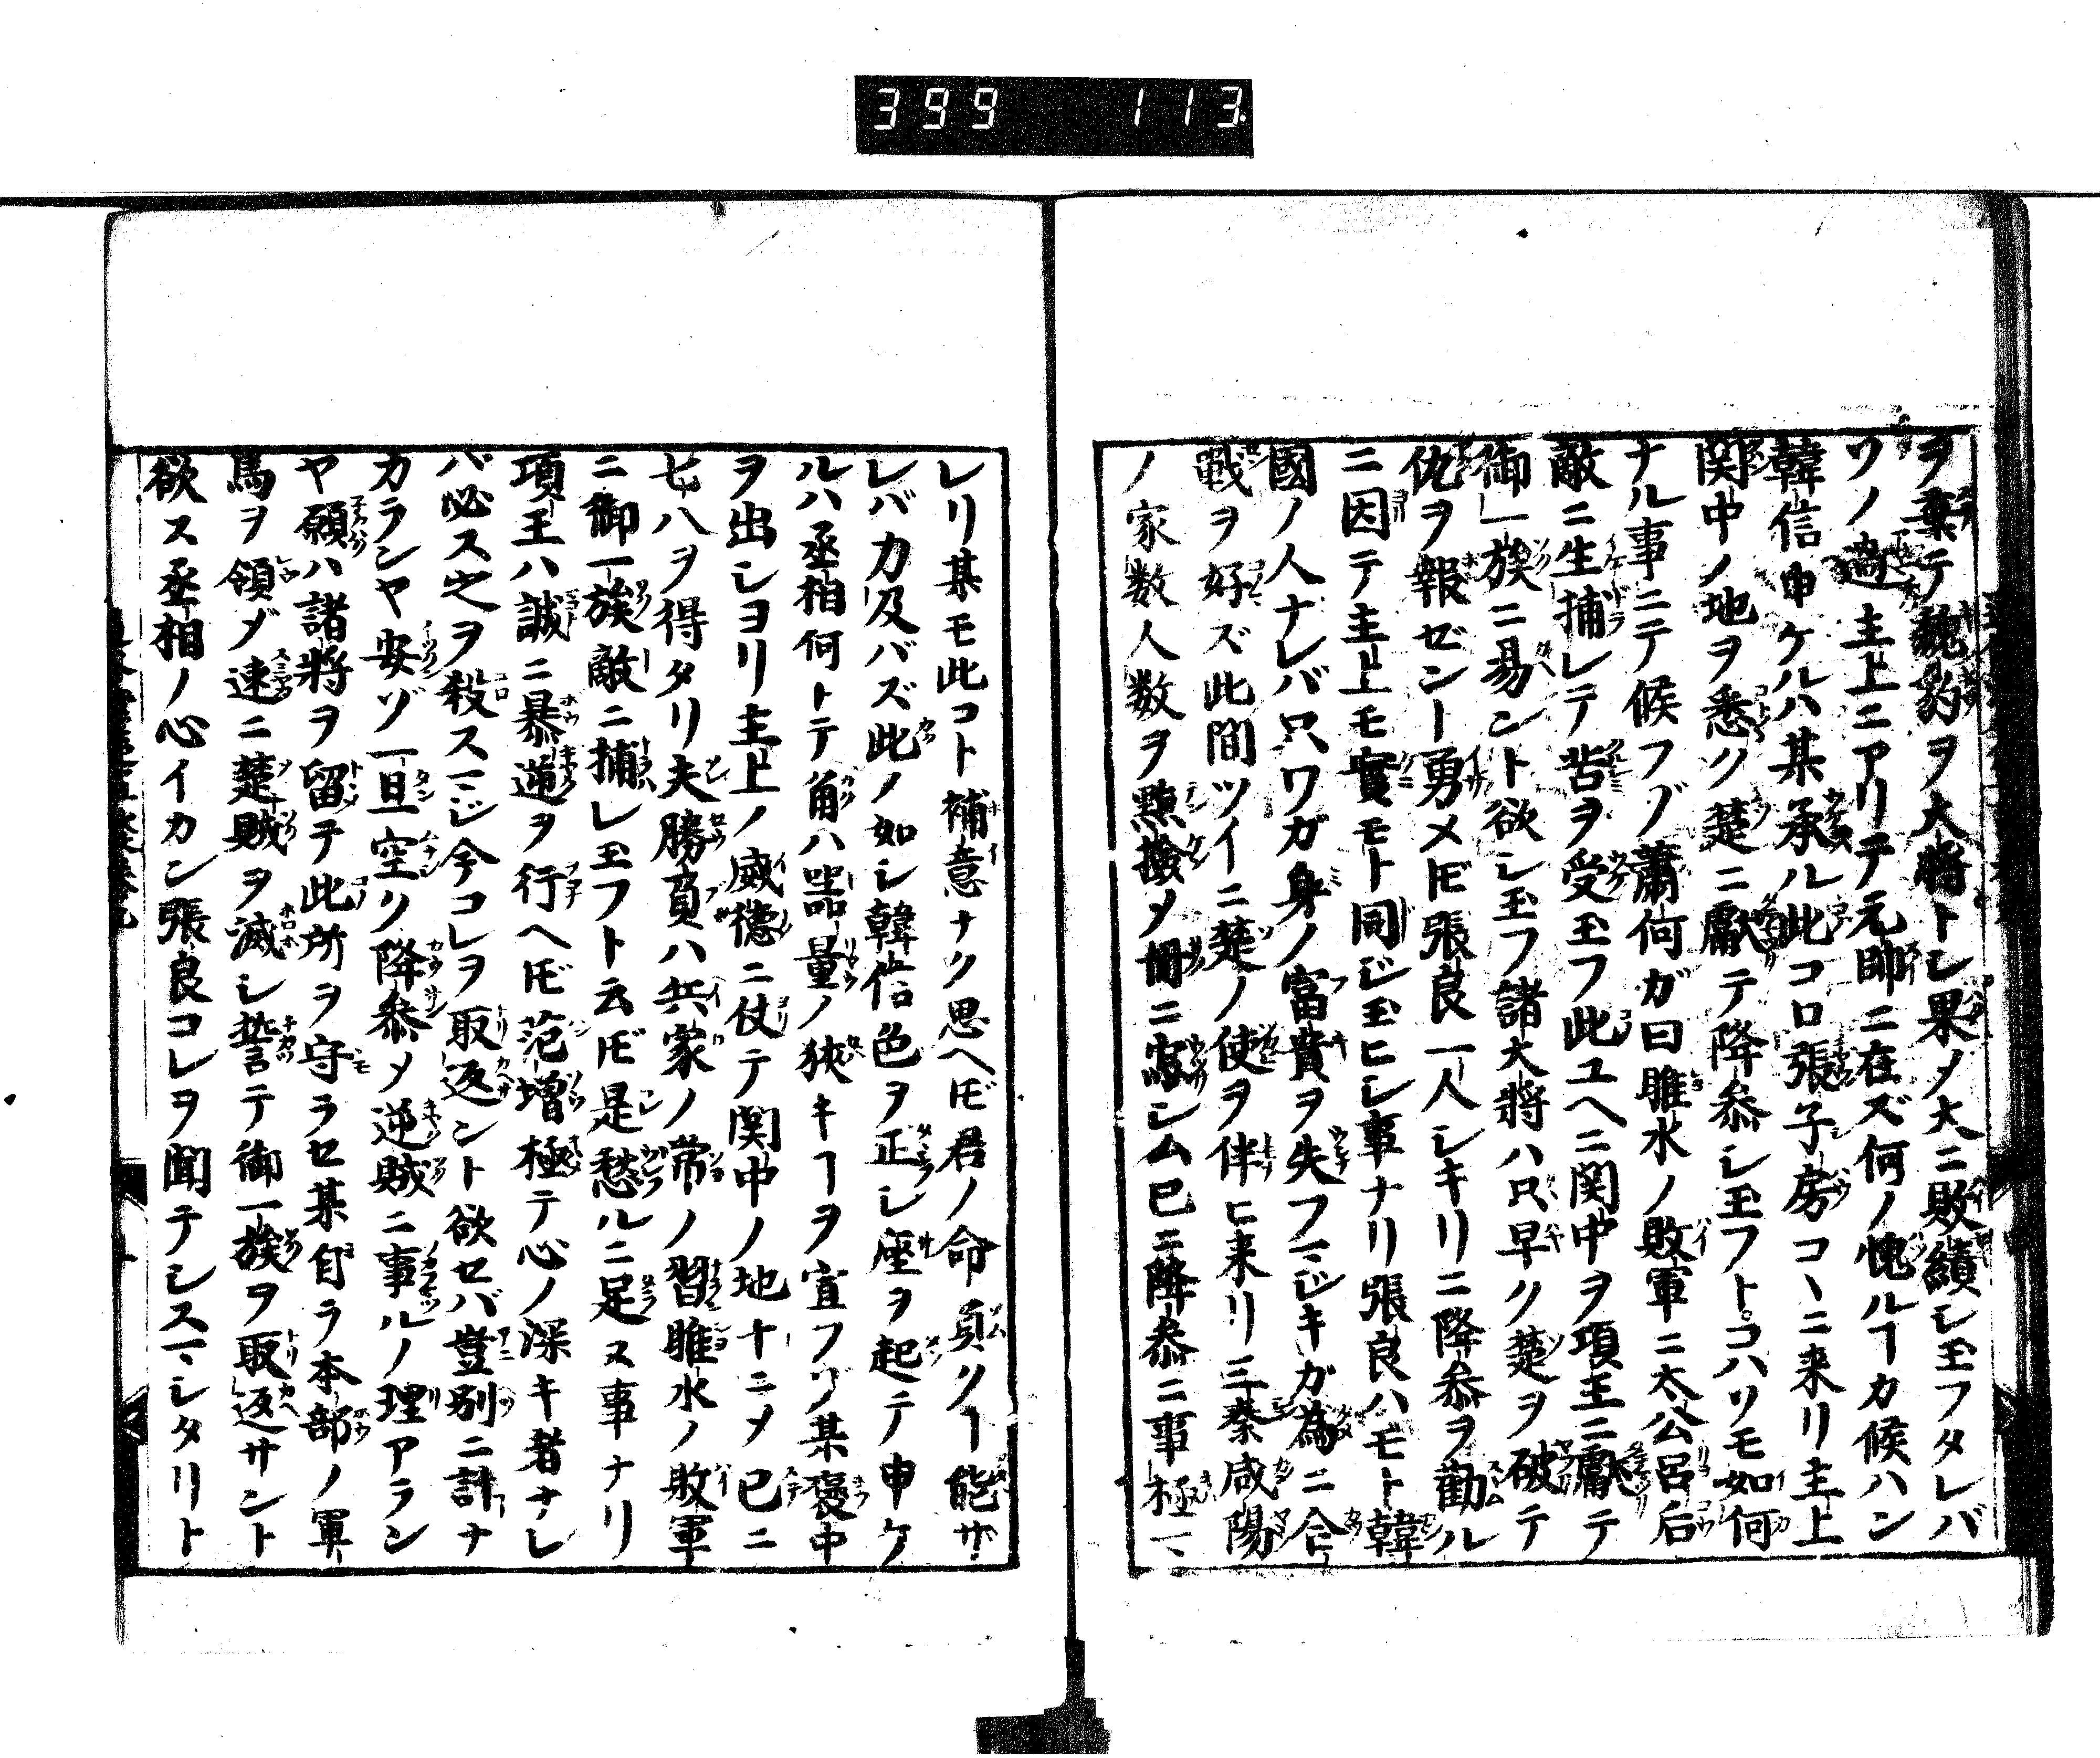 399 113
ヲ棄テ魏豹ヲ大將トシ果メ大ニ敗績シ玉フタレバ
ワノ過主上ニアリテ元帥ニ在ズ何ノ愧ルヿカ候ハン
韓信申ケルハ某承ル此コロ張子房コヽニ来リ主上
関中ノ地ヲ悉ク楚ニ獻テ降参シ玉フトコハソモ如何
ナル事ニテ候フゾ蕭何ガ曰睢水ノ敗軍ニ太公呂后
敵ニ生捕レテ皆ヲ受玉フ此ユヘニ関中ヲ項王ニ獻テ
御一族ニ易ント欲シ玉フ諸大將ハ只早ク楚ヲ破テ
仇ヲ報ゼンヿ勇メ𪜈張良一人シキリニ降参ヲ勸ル
ニ因テ主上モ實モト同ジ玉ヒシ事ナリ張良ハモト韓
國ノ人ナレバ只ワガ身ノ富貴ヲ失フマジキガ為ニ合
戰ヲ好ズ此間ツイニ楚ノ使ヲ伴ヒ来リ三秦咸陽
ノ家数人数ヲ點撿メ冊ニ寫シム已ニ降参ニ事極マ
レリ某モ此コト補意ナク思ヘ𪜈君ノ命負クヿ能ザ
レバ力及バズ此ノ如シ韓信色ヲ正シ座ヲ起テ申ケ
ルハ丞相何トテ角ハ噐量ノ狹キヿヲ宣フソ某褒中
ヲ出シヨリ主上ノ威德ニ仗テ関中ノ地十ニメ已ニ
七八ヲ得タリ夫勝負ハ兵家ノ常ノ習睢水ノ敗軍
ニ御一族敵ニ捕レ玉フト云𪜈是愁ルニ足ヌ事ナリ
項王ハ誠ニ暴逆ヲ行ヘ𪜈范増極テ心ノ深キ者ナレ
バ必ス之ヲ殺スマジ今コレヲ取返ント欲セバ豈別ニ計ナ
カランヤ安ゾ一旦空ク降参メ逆賊ニ事ルノ理アラン
ヤ願ハ諸將ヲ留テ此所ヲ守ラセ某自ラ本部ノ軍
馬ヲ領メ速ニ楚賊ヲ滅シ誓テ御一族ヲ取返サント
欲ス丞相ノ心イカン張良コレヲ聞テシスマシタリト